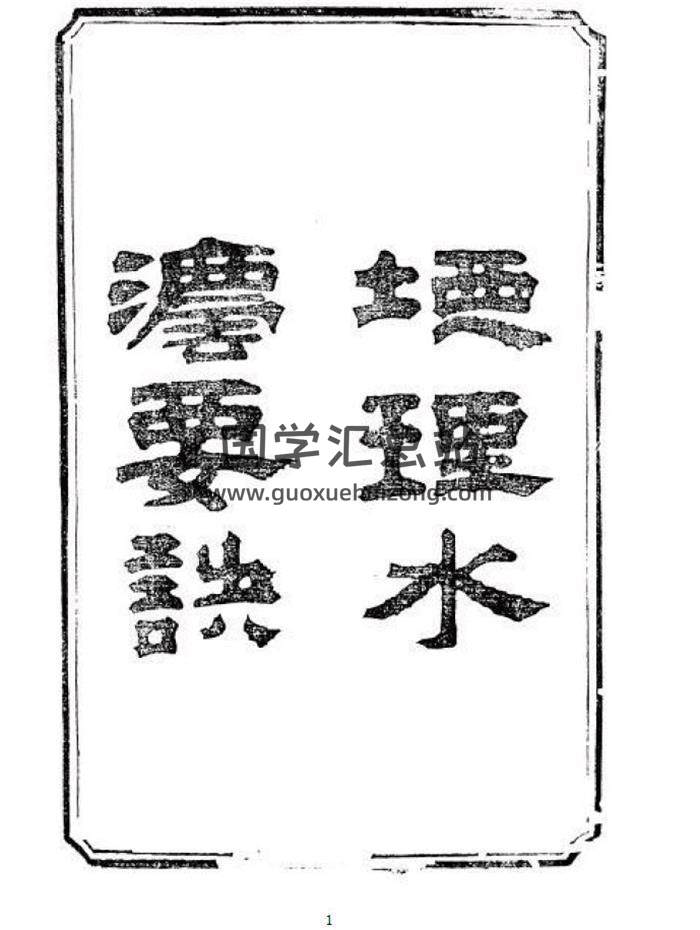 地理水
灋要訣
国学汇总站
www.guoxuehuizong.com
1